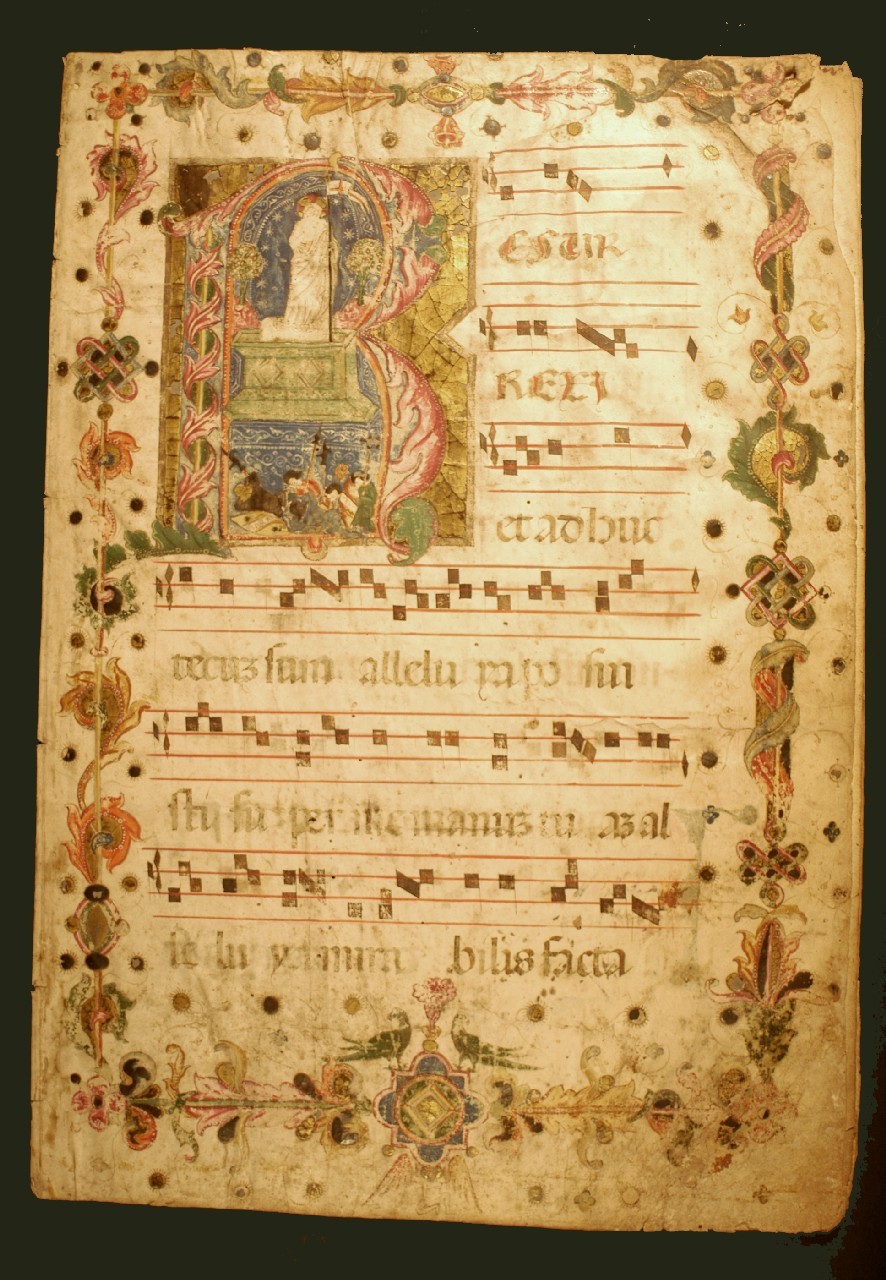 R ESUR
REXI
et adhuc
tecuz sum allelu ya po sui
sti su per me manuz tu az al
le lu ya mira bilis facta